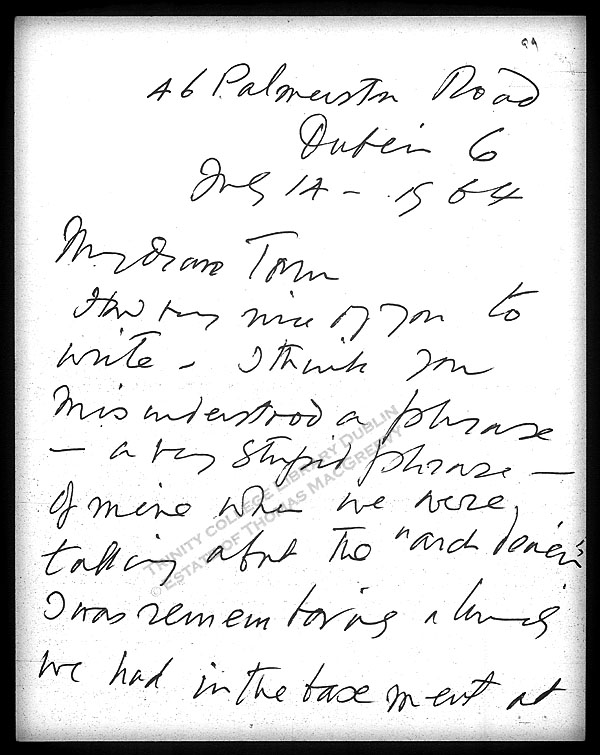 99
46 Palmerston Road
Dublin 6
July 14 - 1964
My dear Tom
How very nice of you to
write - I think you
misunderstood a phrase
- a very stupid phrase -
of mine when we were
talking about the "arch
I was remembering a lunch
we had in the basement at
TRINITY COLLEGE LIBRARY DUBLIN
© ESTATE OF THOMAS MACGREEVY